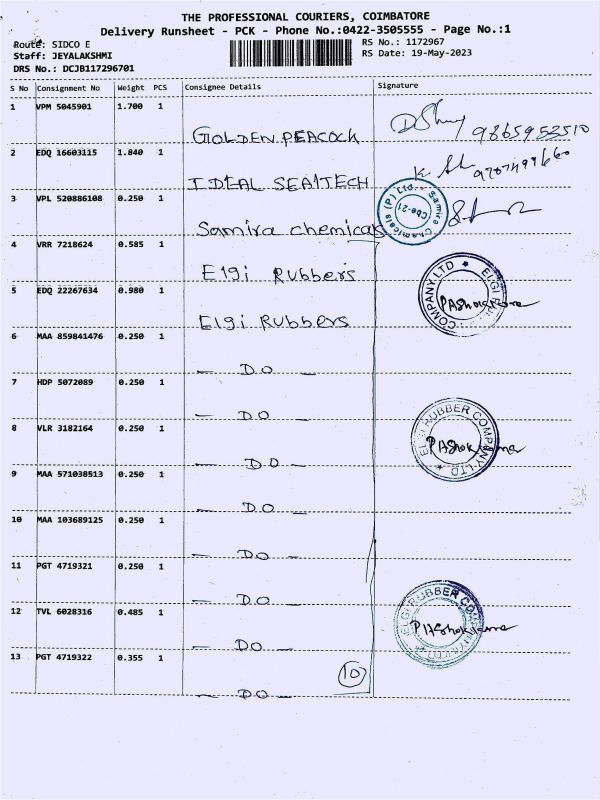 THE PROFESSIONAL COURIERS, COIMBATORE
Delivery Runsheet - PCK - Phone No.:0422-3505555 - Page No.:1
Route: SIDCO E
RS No.: 1172967
Staff: JEYALAKSHMI
RS Date: 19-May-2023
DRS No.: DCJB117296701
S No Consignment No Weight PCS Consignee Details Signature
1 VPM 5045901 1.700 1
GOLDEN PEACOCK 9865953510
2 EDQ 16603115 1.840 1
IDEAL SEALTECH
3 VPL 520886108 0.250 1
Samira chemicals
Samira Chemicals (P) Ltd. Cbe-21
4 VRR 7218624 0.585 1
Elgi Rubbers
ELGI COMPANY LTD
5 EDQ 22267634 0.980 1
Elgi Rubbers
6 MAA 859841476 0.250 1
— DO —
7 HDP 5072089 0.250 1
— DO —
ELGI RUBBER COMPANY LTD
8 VLR 3182164 0.250 1
— DO —
9 MAA 571038513 0.250 1
— DO —
10 MAA 103689125 0.250 1
— DO —
11 PGT 4719321 0.250 1
— DO —
ELGI RUBBER
12 TVL 6028316 0.485 1
— DO —
13 PGT 4719322 0.355 1
10
— DO —